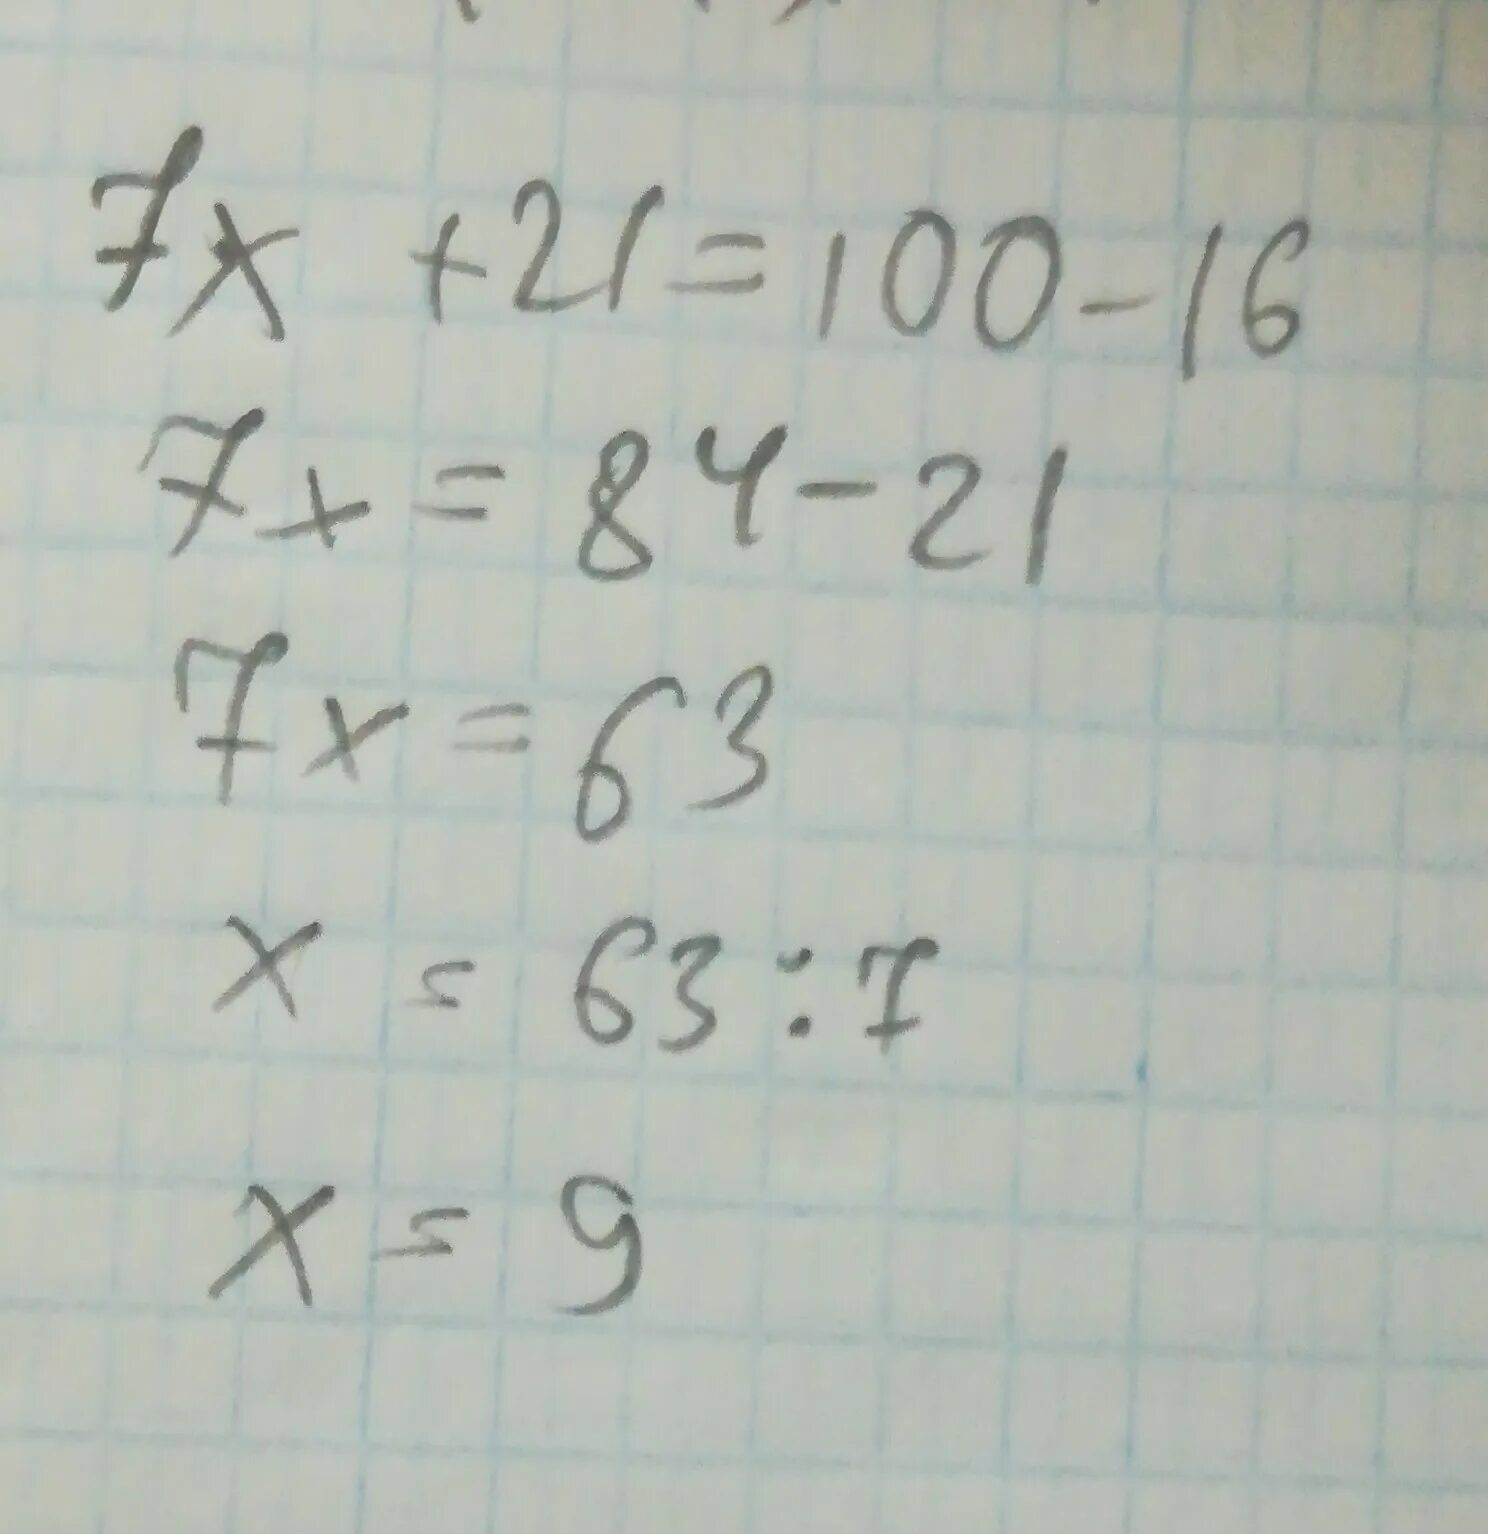 7x + 21 = 100 - 16
7x = 84 - 21
7x = 63
x = 63 : 7
x = 9